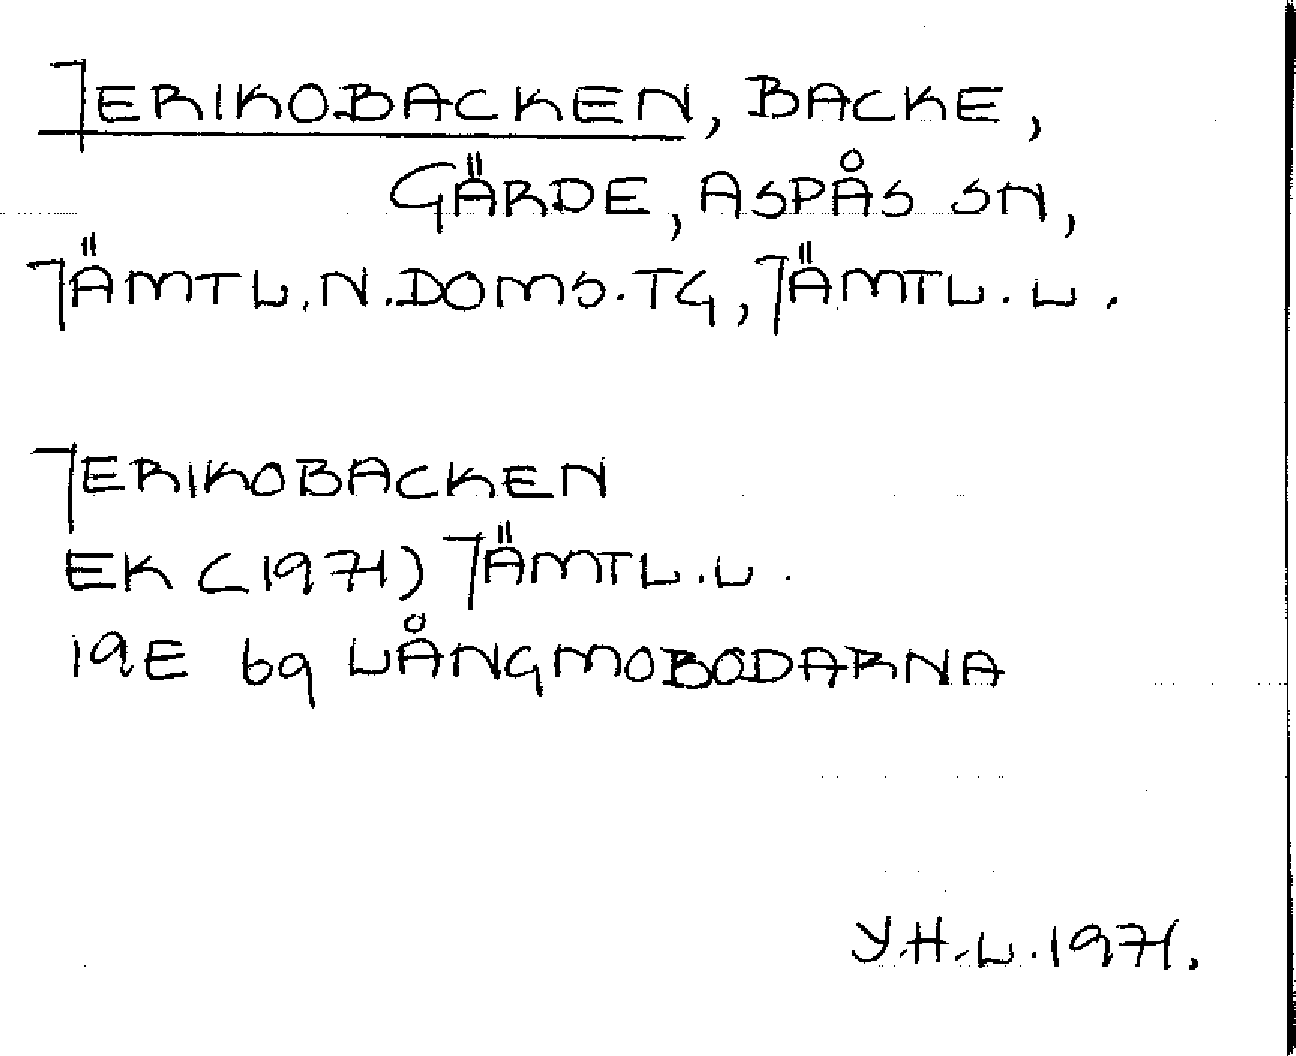 JERIKOBACKEN, BACKE,
GÄRDE, ASPÅS SN,
JÄMTL. N. DOMS. TG, JÄMTL. L.
JERIKOBACKEN
EK (1971) JÄMTL. L.
19E 6g LÅNGMOBODARNA
Y.H.L. 1971.